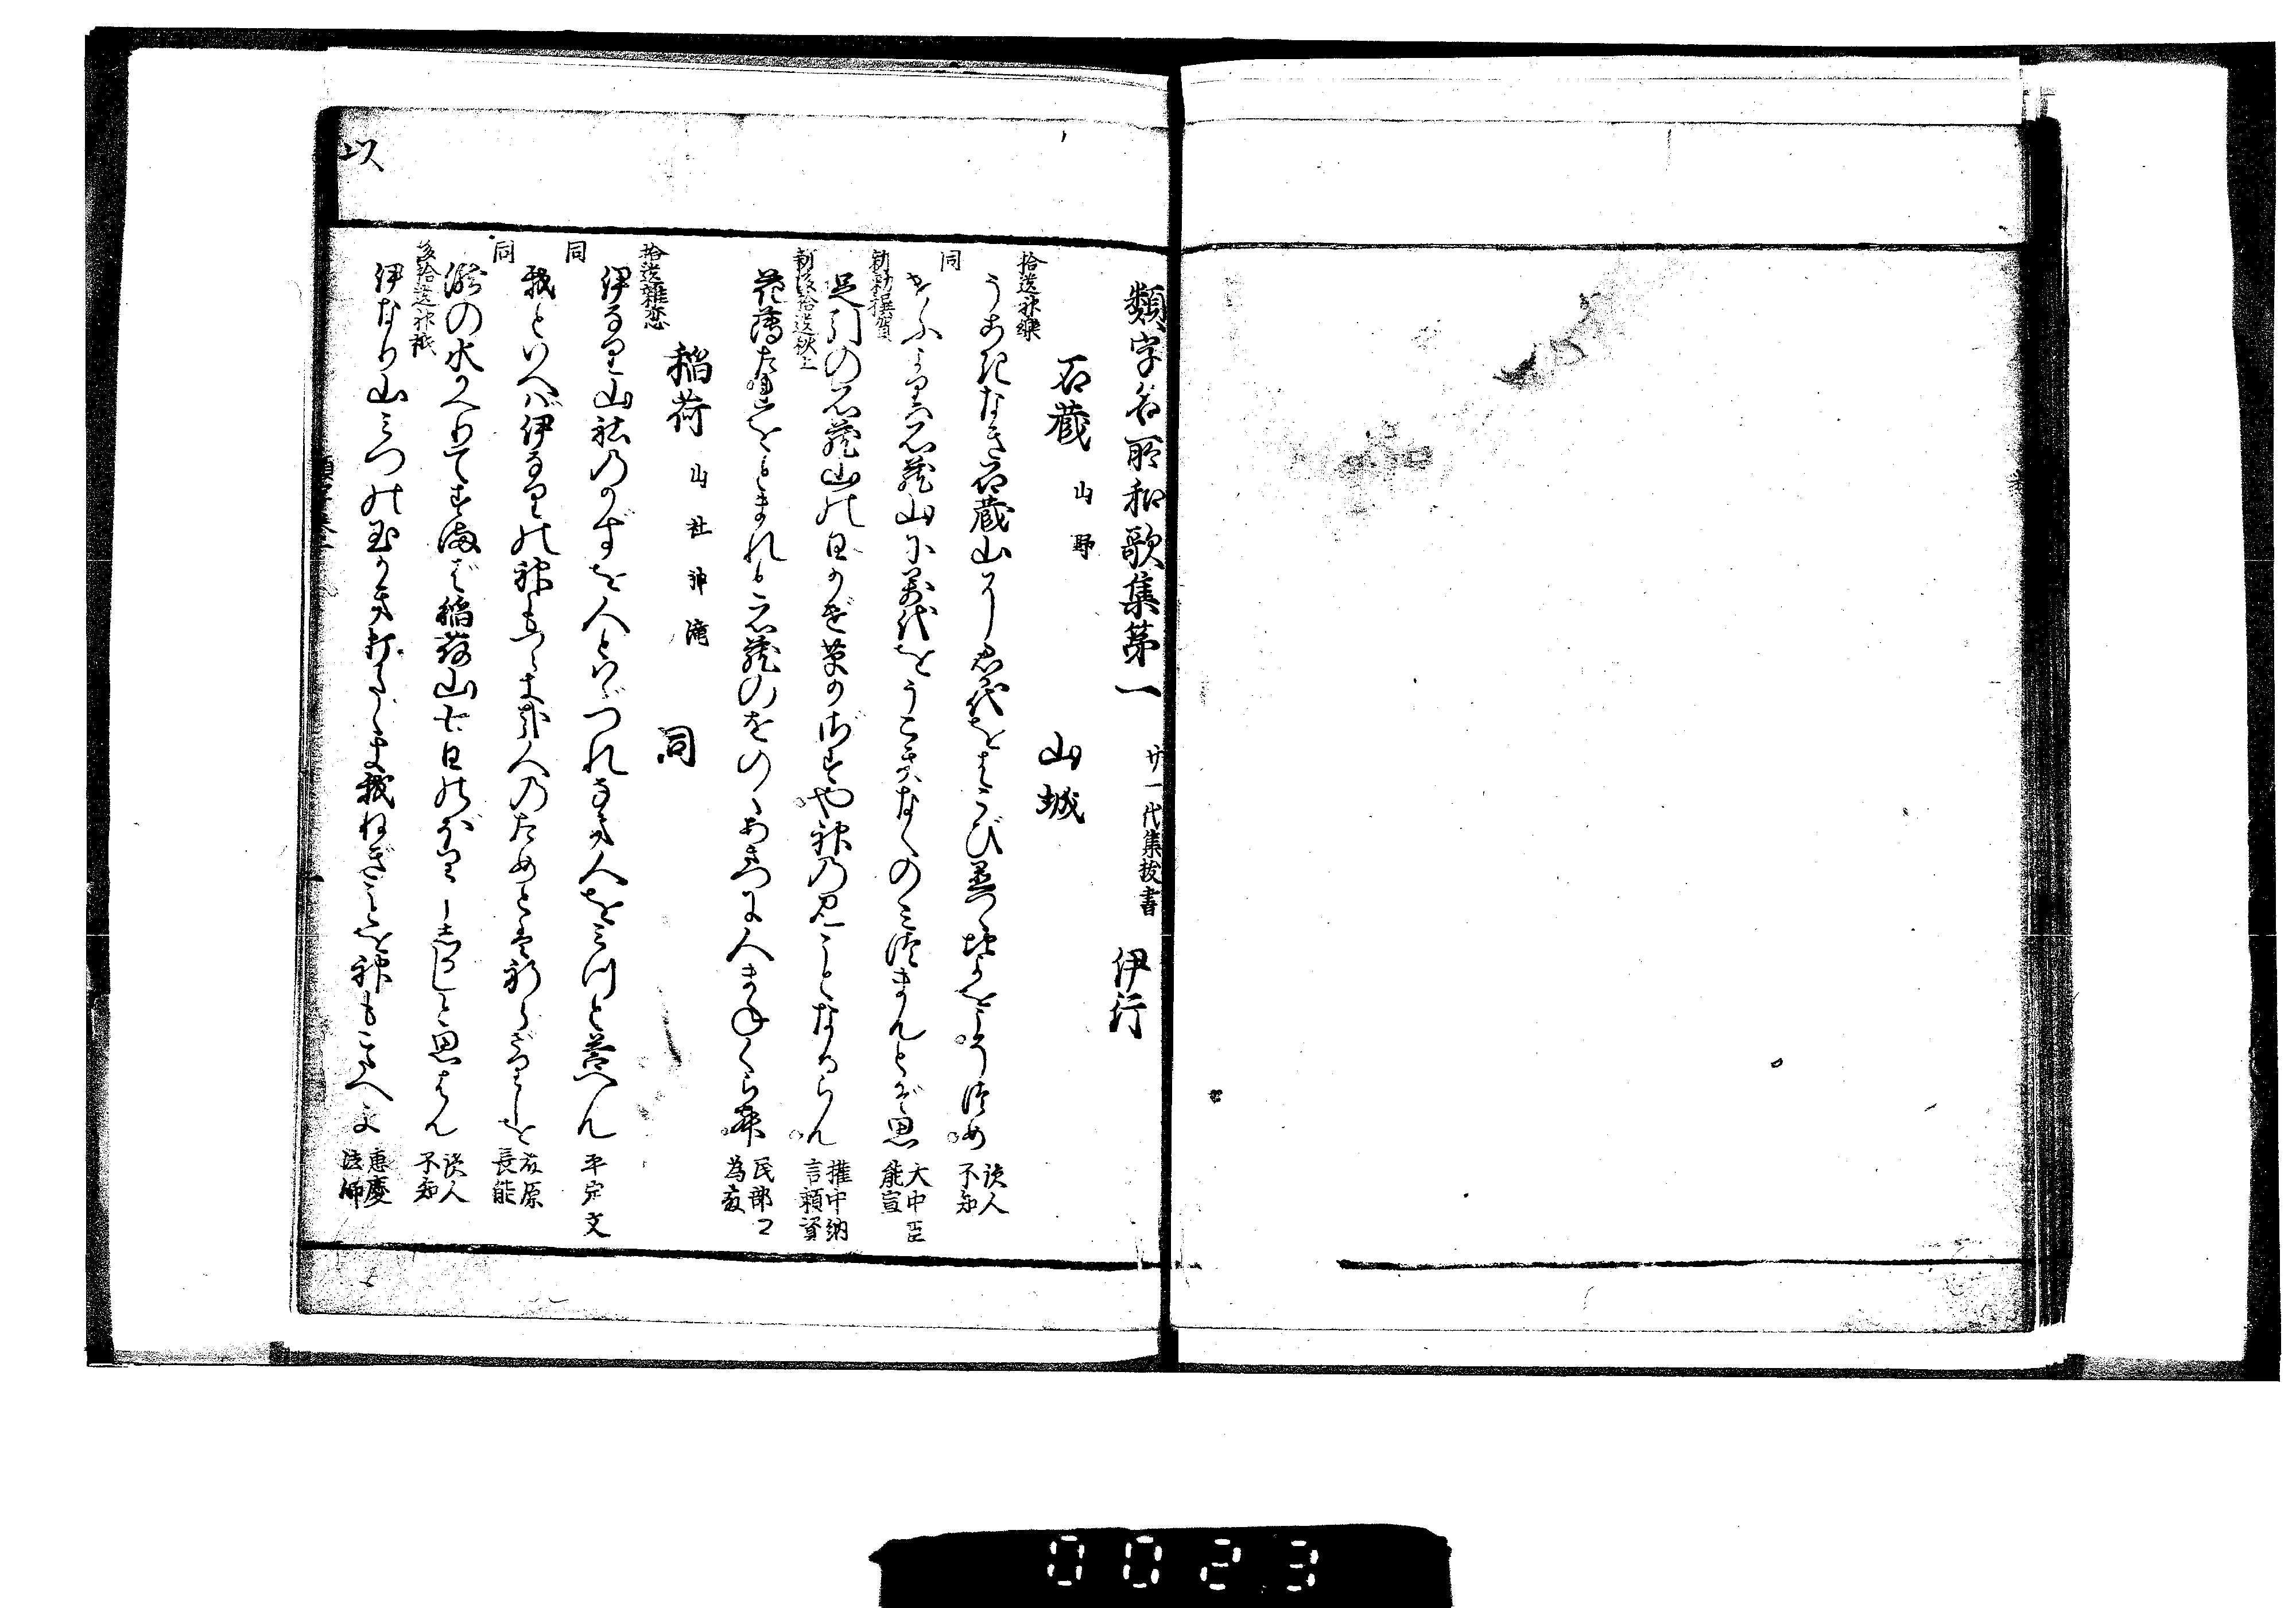 類字名所和歌集第一　廿一代集抜書　伊行
石蔵　山野　山城
拾遺神樂
うごきなき石蔵山に君が代をはこびをきつゝちよをこそつめ　読人不知
同
けふよりは石蔵山に萬代をうごきなくのみつまんとぞ思　大中臣能宣
新勅撰賀
足引の石蔵山の日かげ草かざすや神のみことなるらん　権中納言頼資
新後拾遺秋上
花薄たれをとまれと石蔵のをのゝあきつに人まねくらん　民部卿為藤
稲荷　山社神滝　同
拾遺雑恋
伊なり山社のかずを人とはゞつれなき人をみつと答へん　平定文
同
我といへば伊なりの神もつらき哉人のためとは祈らざりしを　藤原長能
同
瀧の水かへりてすまば稲荷山七日のぼりししるしと思はん　読人不知
後拾遺神祇
伊なり山みつの玉かき打たゝき我ねぎことを神もこたへよ　恵慶法師
類字巻一
一
以
0023